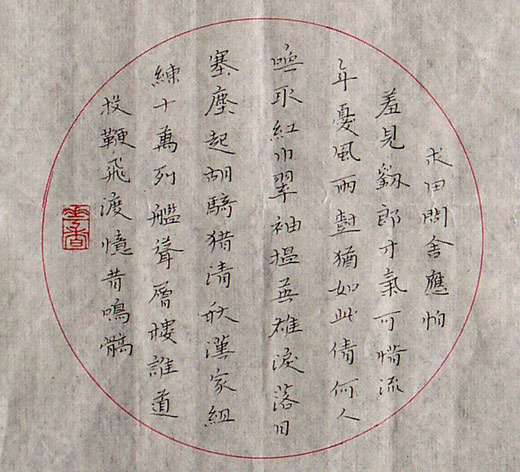 求田問舍應怕
羞見劉郎才氣可惜流
年憂風雨樹猶如此倩何人
喚取紅巾翠袖揾英雄淚落日
塞塵起胡騎猎清秋漢家組
練十萬列艦聳層樓誰道
投鞭飛渡憶昔鳴髇